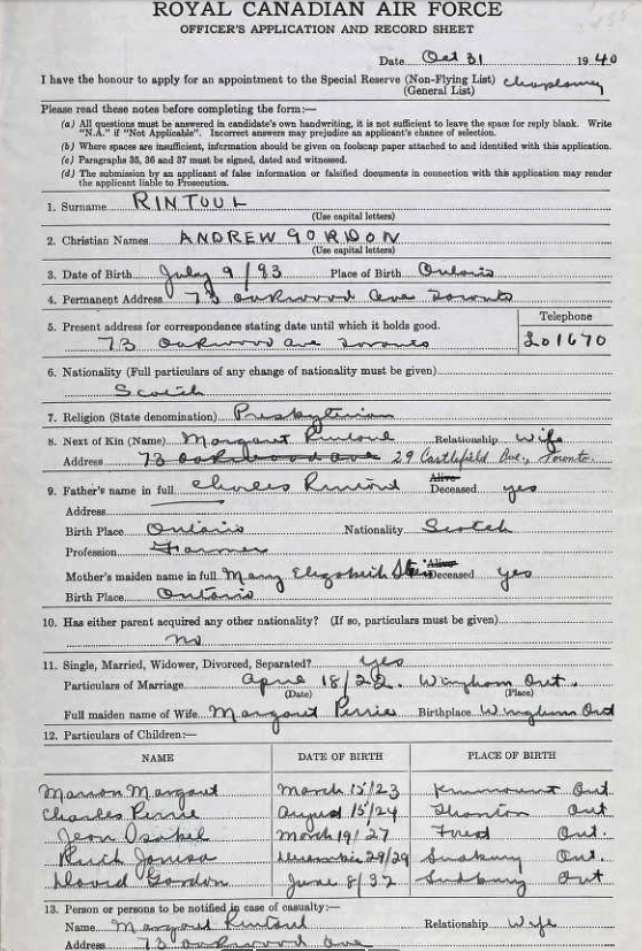 ROYAL CANADIAN AIR FORCE
OFFICER'S APPLICATION AND RECORD SHEET
Date Oct 31 1940
I have the honour to apply for an appointment to the Special Reserve (Non-Flying List) Chaplaincy
(General List)
Please read these notes before completing the form:—
(a) All questions must be answered in candidate's own handwriting, it is not sufficient to leave the space for reply blank. Write
"N.A." if "Not Applicable". Incorrect answers may prejudice an applicant's chance of selection.
(b) Where spaces are insufficient, information should be given on foolscap paper attached to and identified with this application.
(c) Paragraphs 35, 36 and 37 must be signed, dated and witnessed.
(d) The submission by an applicant of false information or falsified documents in connection with this application may render
the applicant liable to Prosecution.
1. Surname RINTOUL
(Use capital letters)
2. Christian Names ANDREW GORDON
(Use capital letters)
3. Date of Birth July 9/93 Place of Birth Ontario
4. Permanent Address 73 Oakwood Ave Toronto
5. Present address for correspondence stating date until which it holds good. Telephone
73 Oakwood Ave Toronto Lo1670
6. Nationality (Full particulars of any change of nationality must be given)
Scotch
7. Religion (State denomination) Presbyterian
8. Next of Kin (Name) Margaret Rintoul Relationship Wife
Address 73 Oakwood Ave 29 Castlefield Ave., Toronto.
9. Father's name in full Charles Rintoul Alive Deceased yes
Address
Birth Place Ontario Nationality Scotch
Profession Farmer
Mother's maiden name in full Mary Elizabeth Alive Deceased yes
Birth Place Ontario
10. Has either parent acquired any other nationality? (If so, particulars must be given)
no
11. Single, Married, Widower, Divorced, Separated? yes
Particulars of Marriage April 18/22. Wingham Ont.
(Date) (Place)
Full maiden name of Wife Margaret Perrie Birthplace Wingham Ont
12. Particulars of Children:—
NAME DATE OF BIRTH PLACE OF BIRTH
Marion Margaret March 15/23 Kinmount Ont.
Charles Perrie August 15/24 Ont
Jean Isabel March 19/27 Forest Ont.
Ruth December 29/29 Sudbury Ont.
David Gordon June 8/32 Sudbury Ont
13. Person or persons to be notified in case of casualty:—
Name Margaret Rintoul Relationship Wife
Address 73 Oakwood Ave